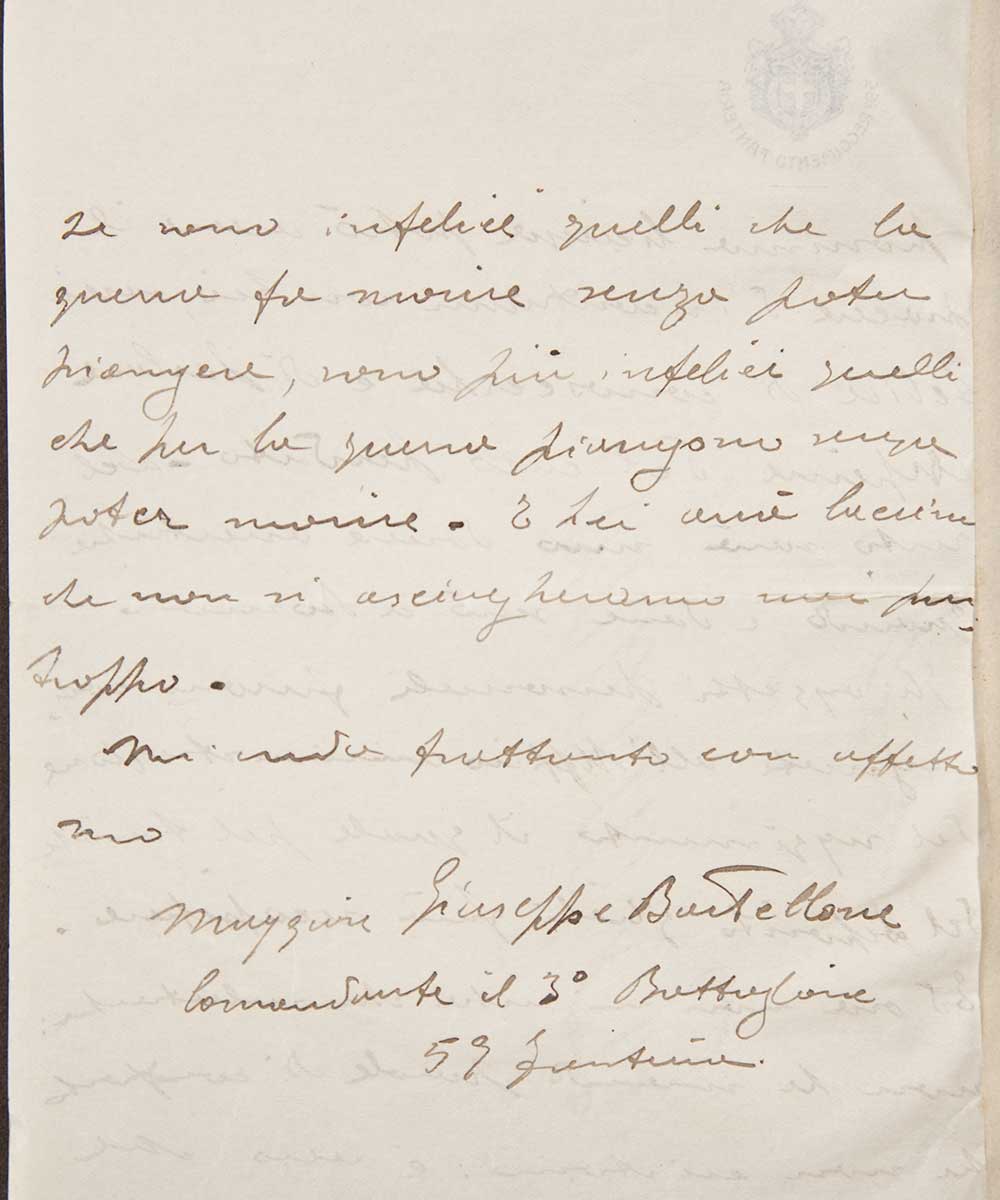 se sono infelici quelli che la
guerra fa morire senza poter
piangere, sono più infelici quelli
che per la guerra piangono senza
poter morire. E Lei avrà lacrime
che non si asciugheranno mai pur
troppo.
Mi creda frattanto con affetto
suo
Maggiore Giuseppe Bortellone
Comandante il 3º Battaglione
59 fanteria.